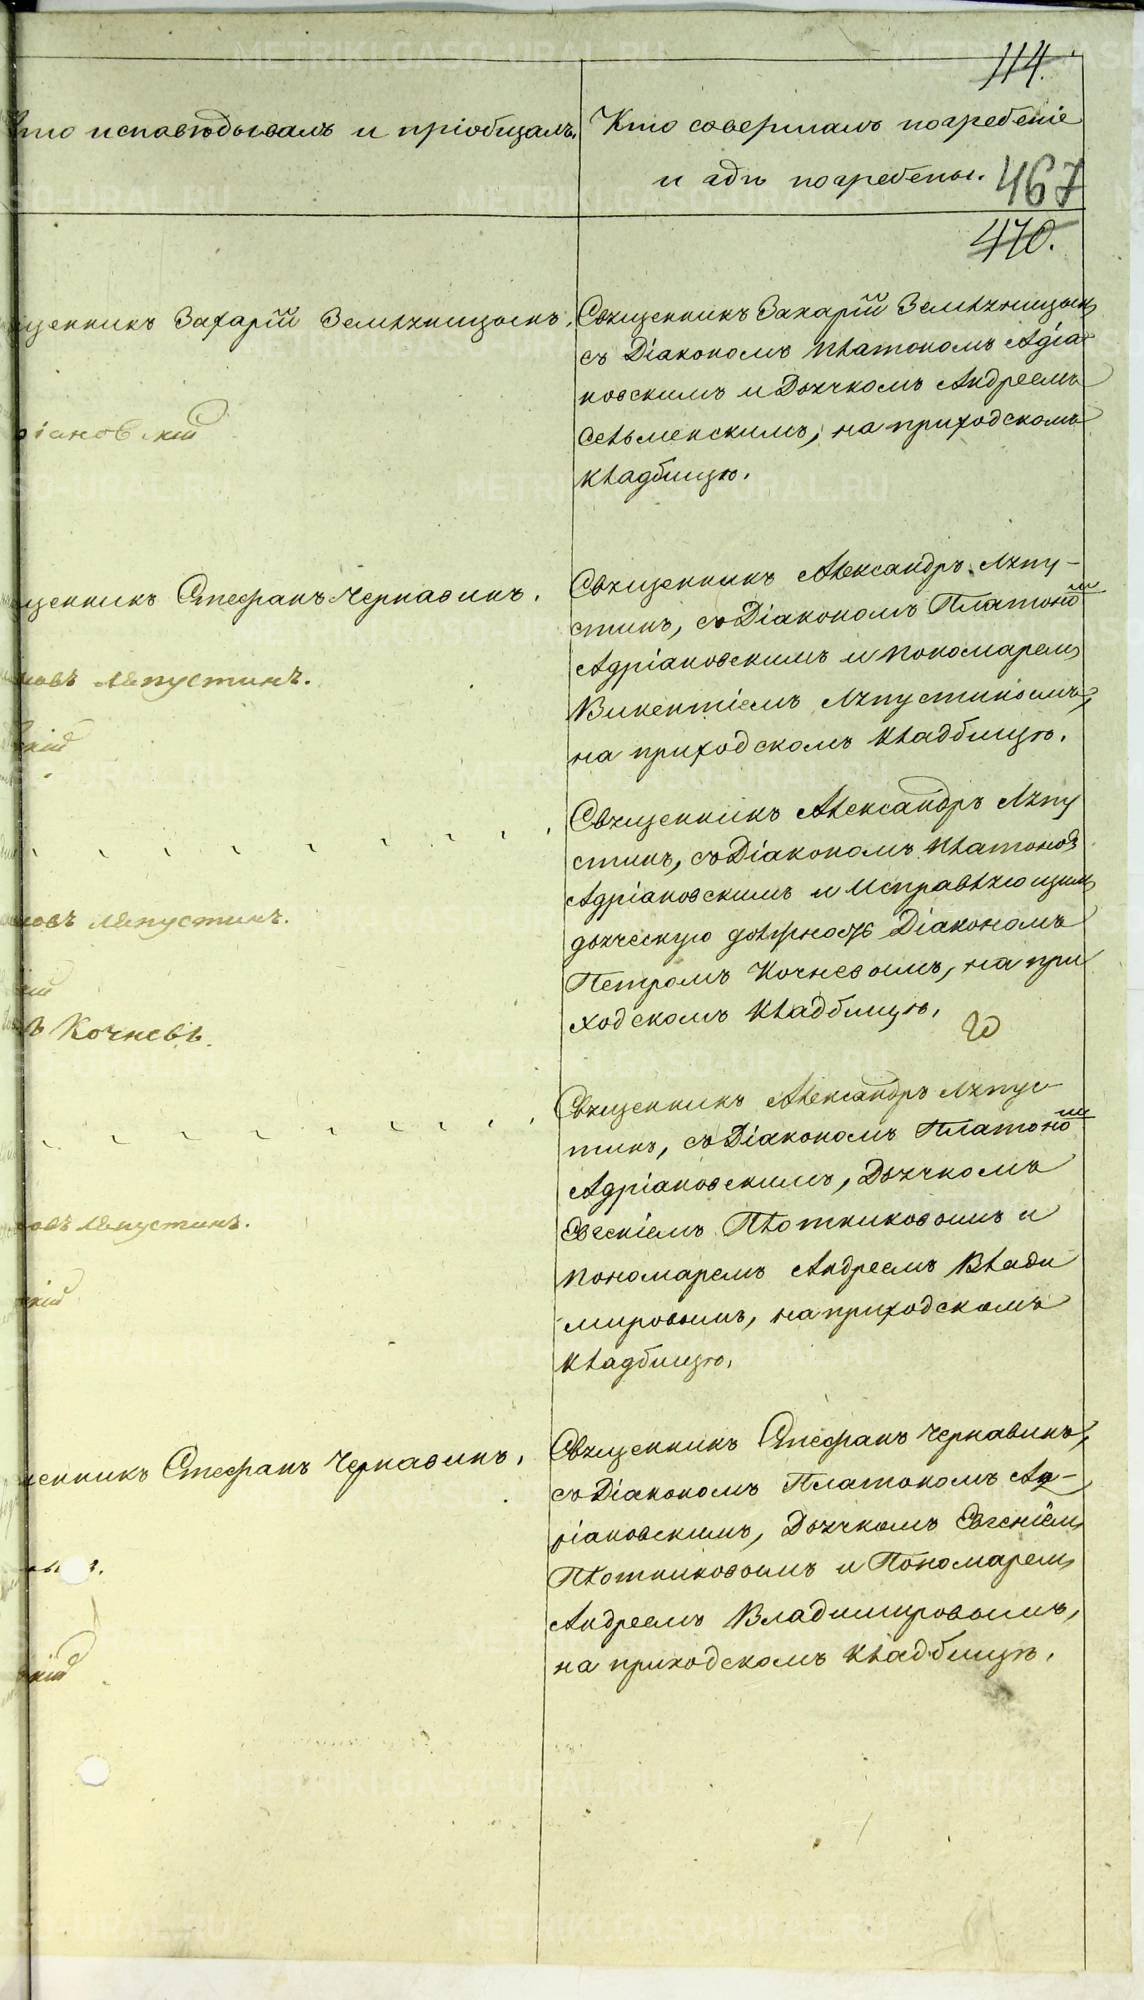 114.
Кто исповѣдывалъ и пріобщалъ.
Кто совершалъ погребеніе
и гдѣ погребены.
467
470.
щенникъ Захарій Земляницынъ.
ріановскій
Священникъ Захарій Земляницынъ
съ Діакономъ Платономъ Адріа
новскимъ и Дьячкомъ Андреемъ
Сельменскимъ, на приходскомъ
кладбищѣ.
щенникъ Стефанъ Чернавинъ.
новъ Ляпустинъ.
скій
Священникъ Александръ Ляпу-
стинъ, съ Діакономъ Платономъ
Адріановскимъ и пономаремъ
Викентіемъ Ляпустинымъ,
на приходскомъ кладбищѣ.
новъ Ляпустинъ.
кій
ъ Кочневъ.
Священникъ Александръ Ляпу
стинъ, съ Діакономъ Платоном
Адріановскимъ и Исправляющимъ
дьяческую должность Діакономъ
Петромъ Кочневымъ, на при
ходскомъ кладбищѣ.
новъ Ляпустинъ.
скій
Священникъ Александръ Ляпус-
тинъ, съ Діакономъ Платономъ
Адріановскимъ, Дьячкомъ
Евгеніемъ Плотниковымъ и
пономаремъ Андреемъ Влади
мировымъ, на приходскомъ
кладбищѣ.
щенникъ Стефанъ Чернавинъ.
скій
Священникъ Стефанъ Чернавинъ,
съ Діакономъ Платономъ Ад-
ріановскимъ, Дьячкомъ Евгеніемъ
Плотниковымъ и Пономаремъ
Андреемъ Владимировымъ,
на приходскомъ кладбищѣ.
METRIKI.GASO-URAL.RU